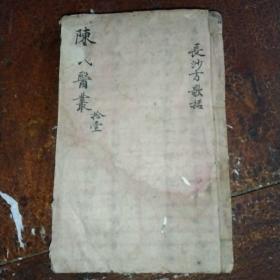 長沙方歌括
陳氏醫叢
拾壹